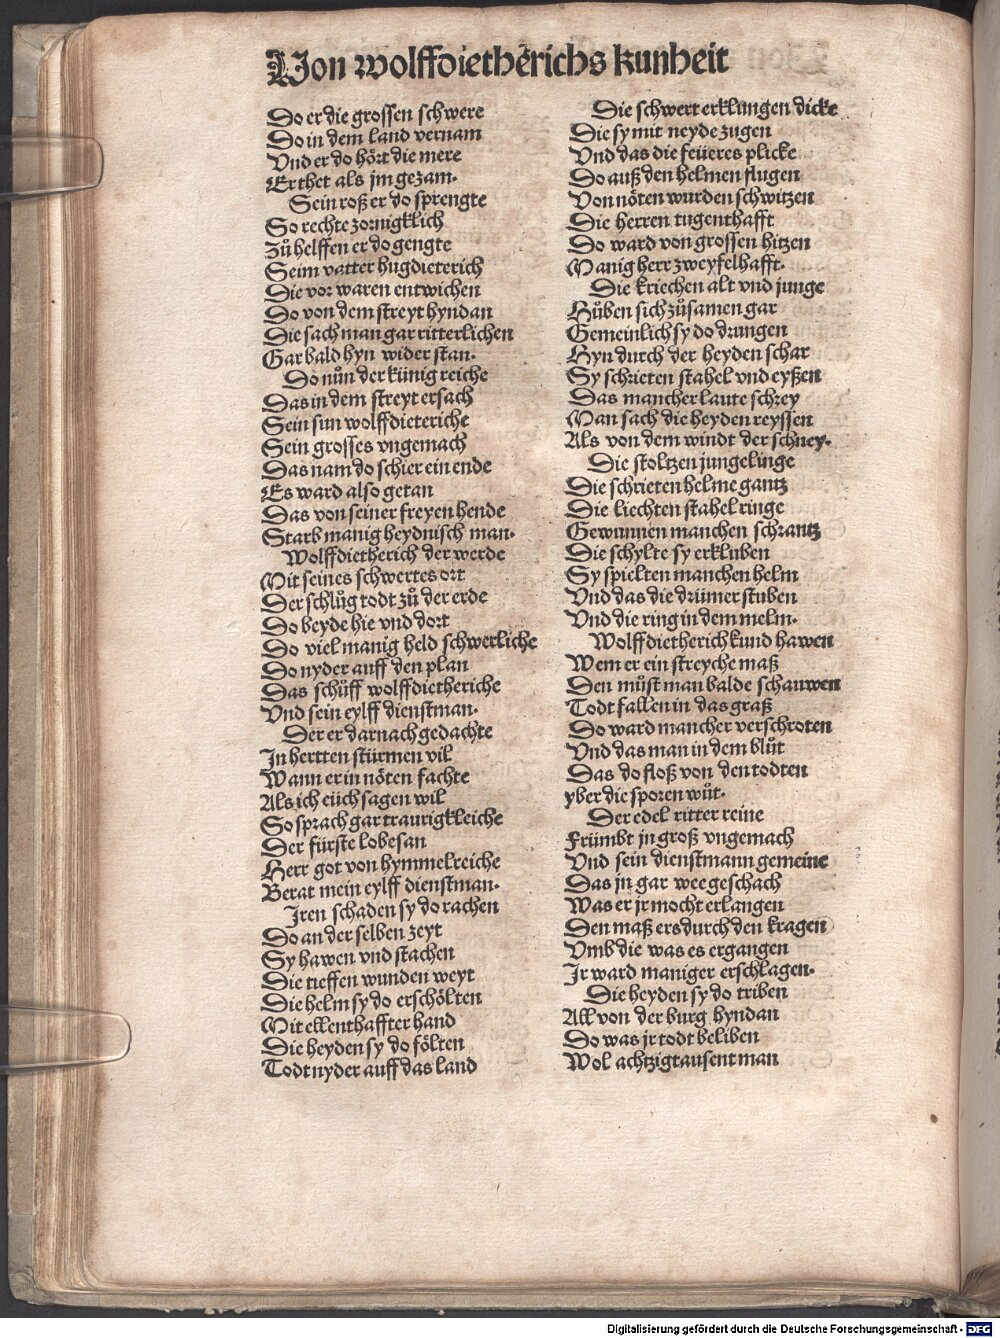 Von wolffdietherichs kunheit
Do er die grossen schwere
Do in dem land vernam
Vnd er do hört die mere
Er thet als jm gezam.
Sein roß er do sprengte
So rechte zornigklich
Zů helffen er do gengte
Seim vatter hugdieterich
Die vor waren entwichen
Do von dem streyt hyndan
Die sach man gar ritterlichen
Gar bald hyn wider stan.
Do nůn der künig reiche
Das in dem streyt ersach
Sein sun wolffdieteriche
Sein grosses vngemach
Das nam do schier ein ende
Es ward also getan
Das von seiner freyen hende
Starb manig heydnisch man.
Wolffdietherich der werde
Mit seines schwertes ort
Der schlůg todt zů der erde
Do beyde hie vnd dort
Do viel manig held schwerliche
Do nyder auff den plan
Das schůff wolffdietheriche
Vnd sein eylff dienstman.
Der er darnach gedachte
Jn hertten stürmen vil
Wann er in nöten fachte
Als ich eüch sagen wil
So sprach gar traurigkleiche
Der fürste lobesan
Herr got von hymmelreiche
Berat mein eylff dienstman.
Jren schaden sy do rachen
Do an der selben zeyt
Sy hawen vnd stachen
Die tieffen wunden weyt
Die helm sy do erschölten
Mit ellenthaffter hand
Die heyden sy do fölten
Todt nyder auff das land
Die schwert erklungen dicke
Die sy mit neyde zugen
Vnd das die feüeres plicke
Do auß den helmen flugen
Von nöten wurden schwitzen
Die herren tugenthafft
Do ward von grossen hitzen
Manig herr zweyfelhafft.
Die kriechen alt vnd junge
Hůben sich zůsamen gar
Gemeinlich sy do drungen
Hyn durch der heyden schar
Sy schrieten stahel vnd eyßen
Das mancher laute schrey
Man sach die heyden reyssen
Als von dem windt der schney.
Die stoltzen jungelinge
Die schrieten helme gantz
Die liechten stahel ringe
Gewunnen manchen schrantz
Die schylte sy erkluben
Sy spielten manchen helm
Vnd das die drümer stuben
Vnd die ring in dem melm.
Wolffdietherich kund hawen
Wem er ein streyche maß
Den můst man balde schauwen
Todt fallen in das graß
Do ward mancher verschroten
Vnd das man in dem blůt
Das do floß von den todten
yber die sporen wůt.
Der edel ritter reine
Frümbt jn groß vngemach
Vnd sein dienstmann gemeine
Das jn gar wee geschach
Was er jr mocht erlangen
Den maß ers durch den kragen
Vmb die was es ergangen
Jr ward maniger erschlagen.
Die heyden sy do triben
All von der burg hyndan
Do was jr todt beliben
Wol achtzigtausent man
Digitalisierung gefördert durch die Deutsche Forschungsgemeinschaft - DFG